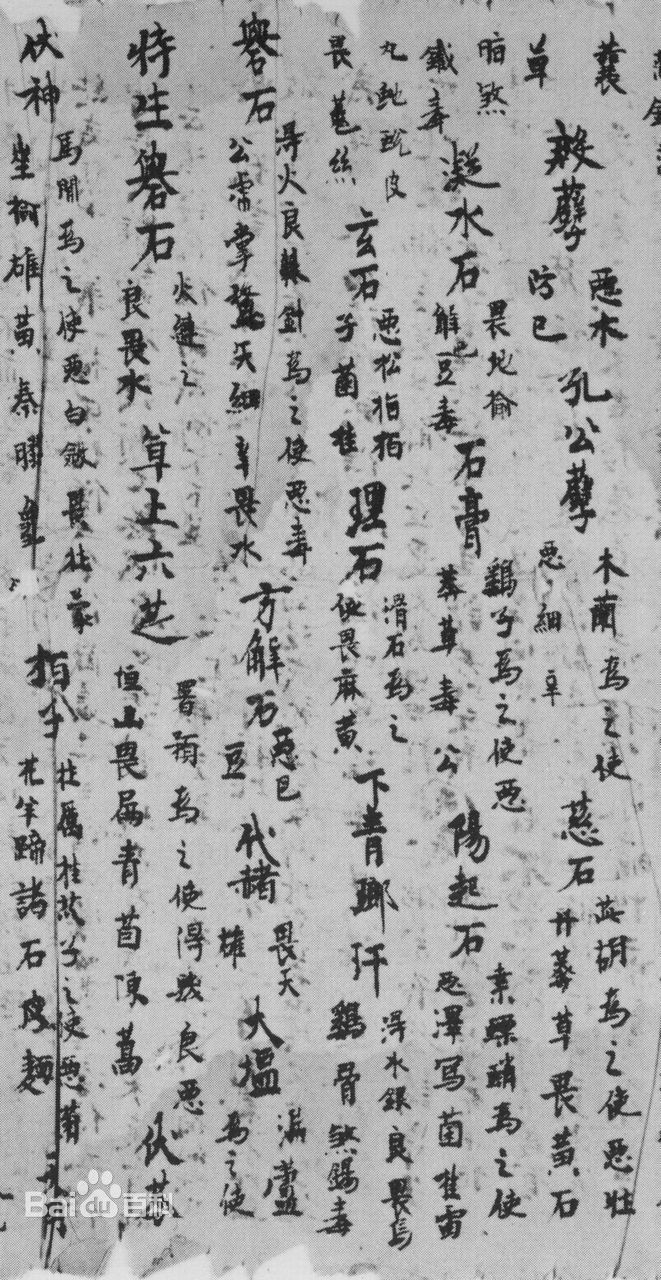 蘘草 殺孽 惡木防己 孔公孽 木蘭為之使惡細辛 慈石 茈胡為之使惡牡丹莽草畏黃石
脂煞鐵毒 凝水石 畏地榆解巴豆毒 石膏 鷄子為之使惡莽草毒公 陽起石 桑螵蛸為之使惡澤寫菌桂雷
丸蛇蛻皮畏菟絲 玄石 惡松柏栢子菌桂 理石 滑石為之使畏麻黃 下青瑯玕 得水銀良畏烏鷄骨煞錫毒
礜石 得火良棘針為之使惡毒公虎掌鶩矢細辛畏水 方解石 惡巴豆 代赭 畏天雄 大塩 漏蘆為之使
特生礜石 火鍊之良畏水 草上六芝 署預為之使得髮良惡恒山畏扁青茵陳蒿 伏苓
伏神 馬間為之使惡白斂畏牡蒙地榆雄黃秦膠龜 柏子 牡厲桂瓜子之使惡菊花羊蹄諸石皮麵
Bai du 百科